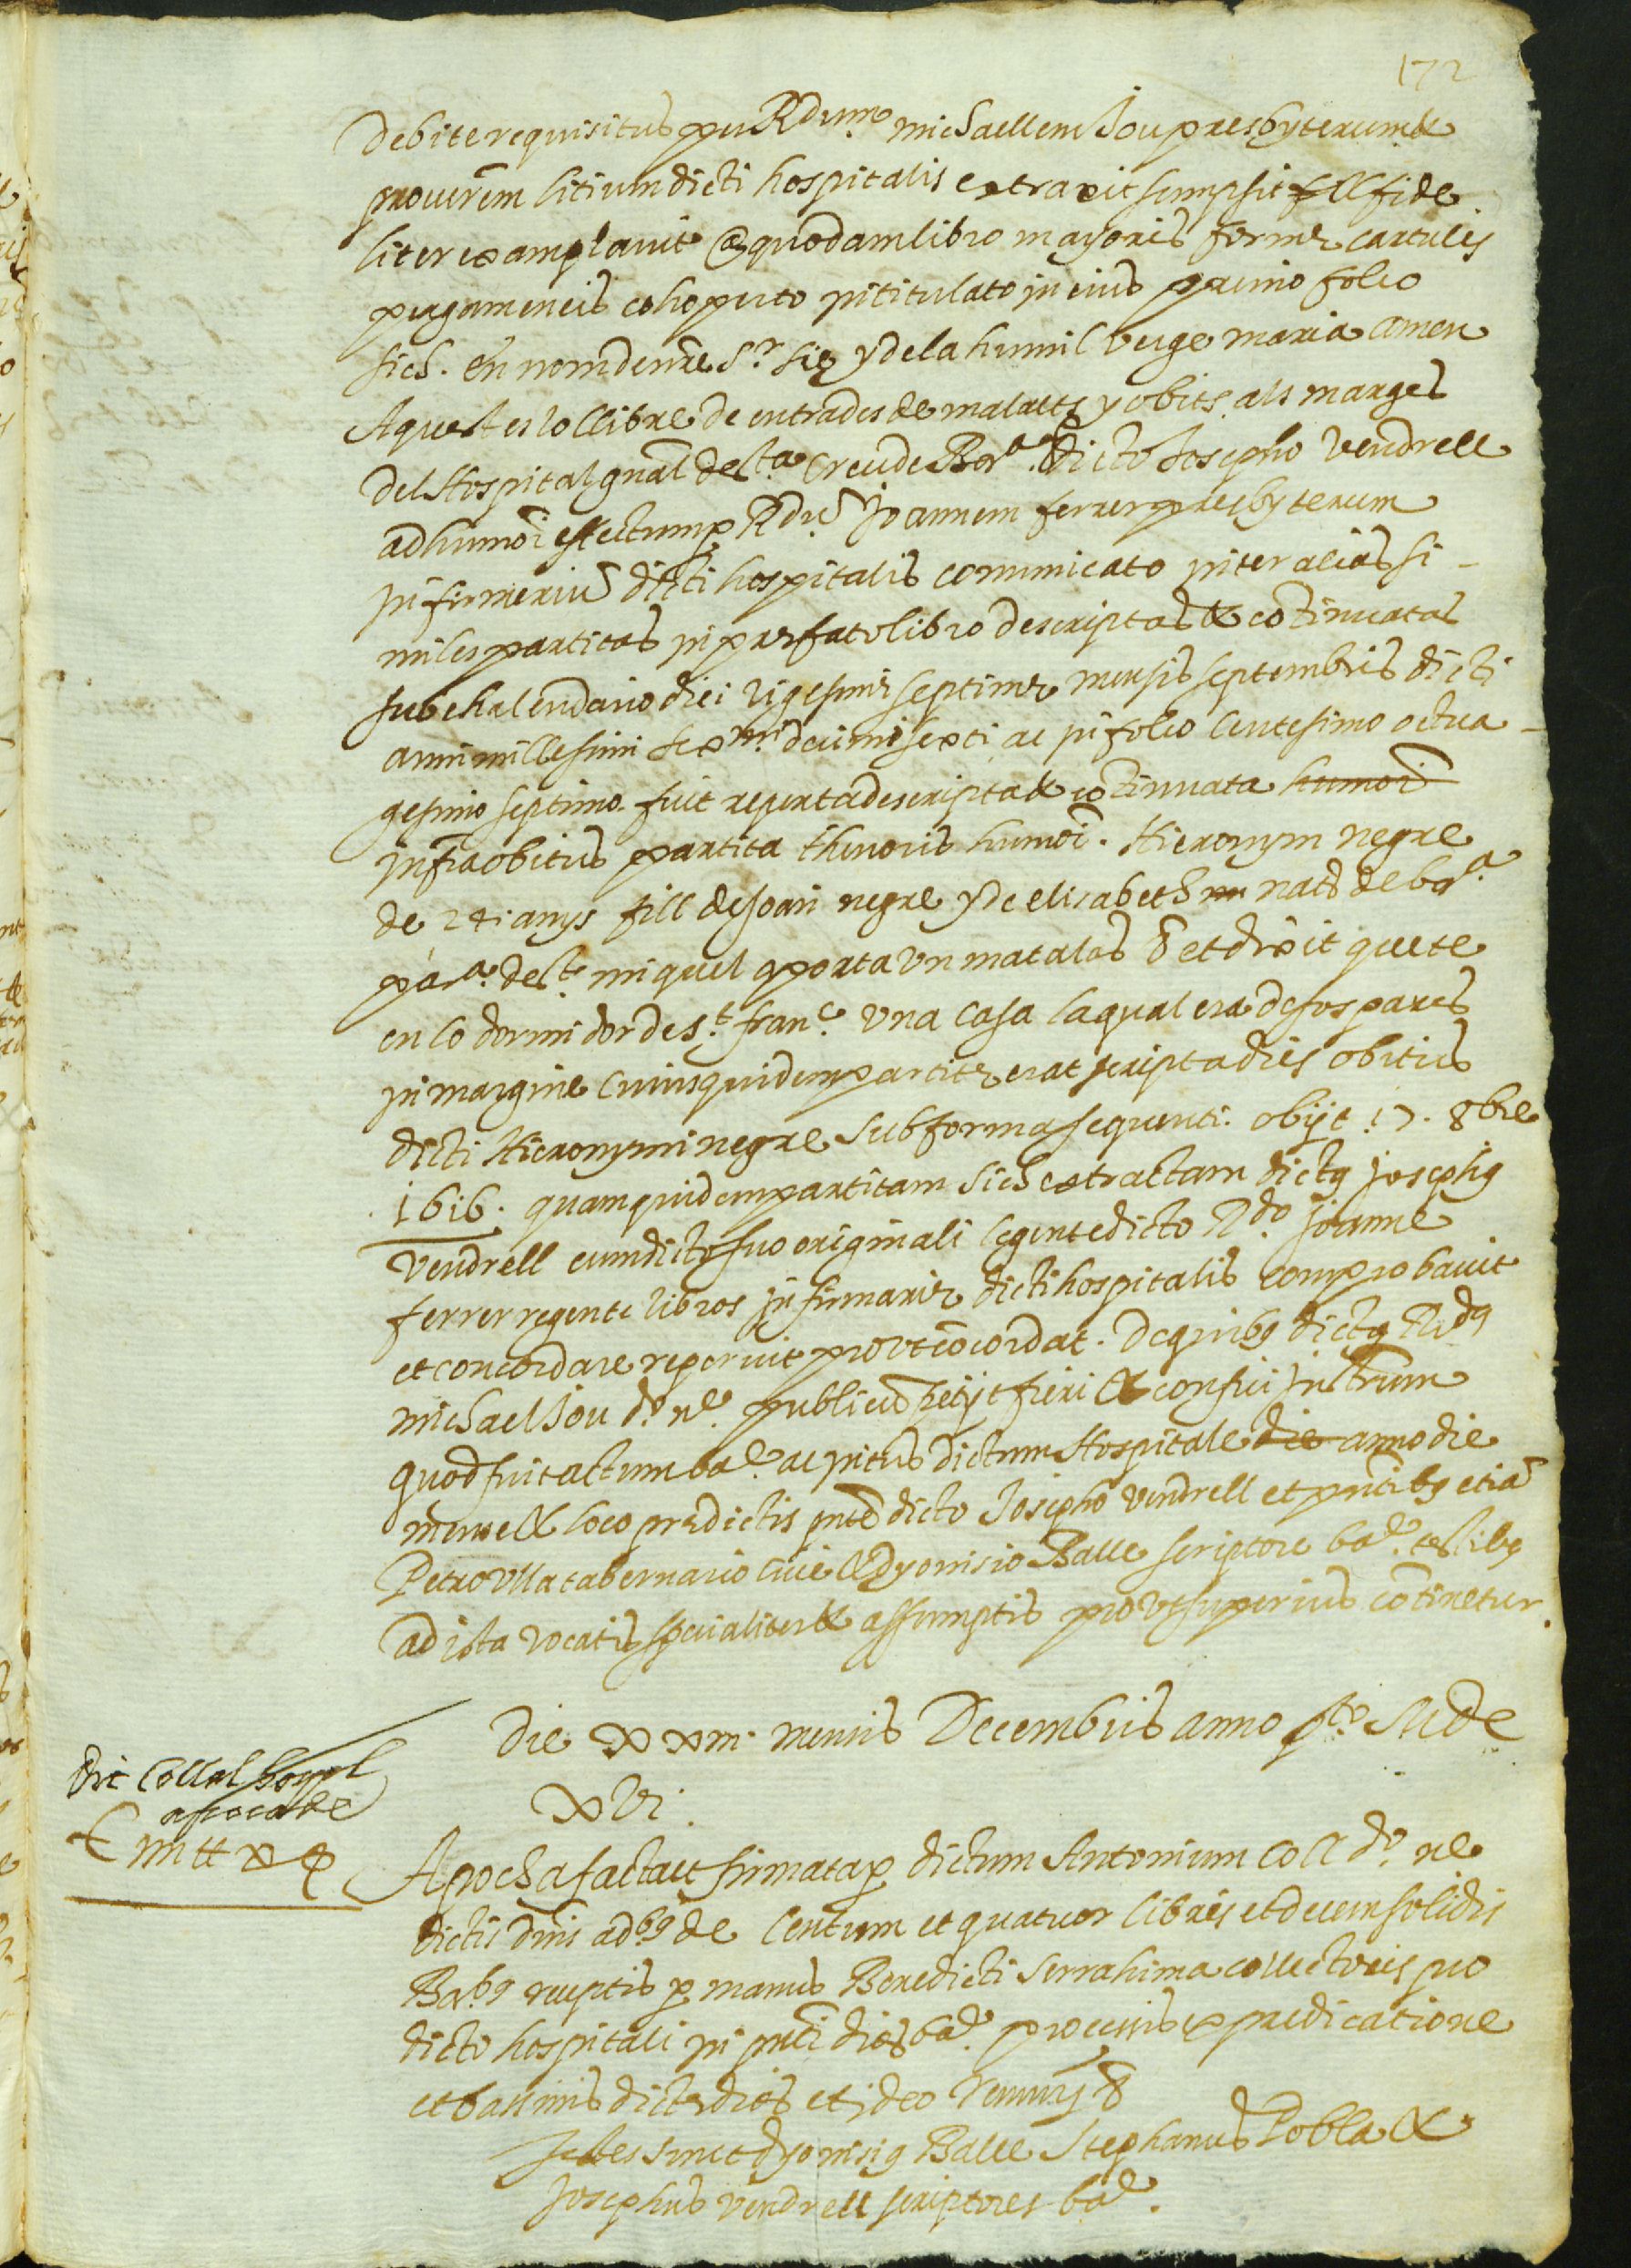 172
Debite requisitus per Rdum. michaellem Jou presbyterum &
procurem litium dicti hospitalis extraxit sumpsit & fide
liter exemplavit a quodam libro mayoris forme cartulis
pergameneis cohoperto intitulato in eius primo folio
sich. En nom de nre Sr. sie y de la humil verge maria amen
Aquest es lo llibre de entrades de malalts y obits als marges
Del Hospital gnal de sta. Creu de Bara. dicto Josepho Vendrell
ad humoi effectum per Rdū Joannem ferrer presbyterum
infirmeriū dicti hospitalis comunicato inter alias si-
miles partitas in prefato libro descriptas & cōtinuatas
sub chalendario diei vigesime septime mensis septembris dicti
anni millesimi sexmi. decimi sexti ac in folio Centesimo octua-
gesimo septimo. fuit reperta descripta & cōtinuata humoi
infra obitus partita thenoris humoi. Hieronym negre
de 24 anys fill de Joan negre y de elisabeth nats de bara.
para. de st. miquel aporta un matalas & dixit que te
en lo dormidor de st. franc. una casa la qual era de sos pares
in margine cuius quidem partite erat scripta dies obitus
dicti Hieronymi negre sub forma sequenti. obijt 17. 8bre
1616. quam quidem partitam sich extractam dictus Josephus
Vendrell cum dicto suo originali legente dicto Rdo. Joanne
ferrer regente libros infirmarie dicti hospitalis comprobavit
et concordare reperuit prout cōcordat. De quibus dictus Rdus
michael Jou do. ne. publicū petijt fieri & confici Instrum
quod fuit actum bae. ac intus dictum Hospitale die anno die
mense & loco predictis pnte dicto Josepho Vendrell et pntibus etiā
Petro Ulla tabernario cive & dyonisio Balle scriptore bae. testibus
ad ista vocatis specialiter & assumptis prout superius cōtinetur.
Die xxiii. mensis Decembris anno pto. Mdc
xvi.
Dit Coll al hospl
apoca de
Ciiii ℔ x
Apocha facta et firmata per dictum Antonium Coll do. ne
dictis dnis adbus de Centum et quatuor libris et decem solidis
Babus receptis per manus Benedicti Serrahima collectoris pro
dicto hospitali in pnti dioc̄ bae. processis ex predicatione
et bassinis dicte dioc̄ et ideo renunc &
Testes sunt dyonisius Balle Stephanus Pobla &
Josephus Vendrell scriptores bae.